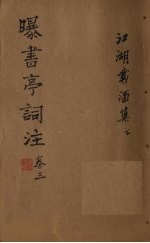 江湖載酒集下
曝書亭詞注 卷三